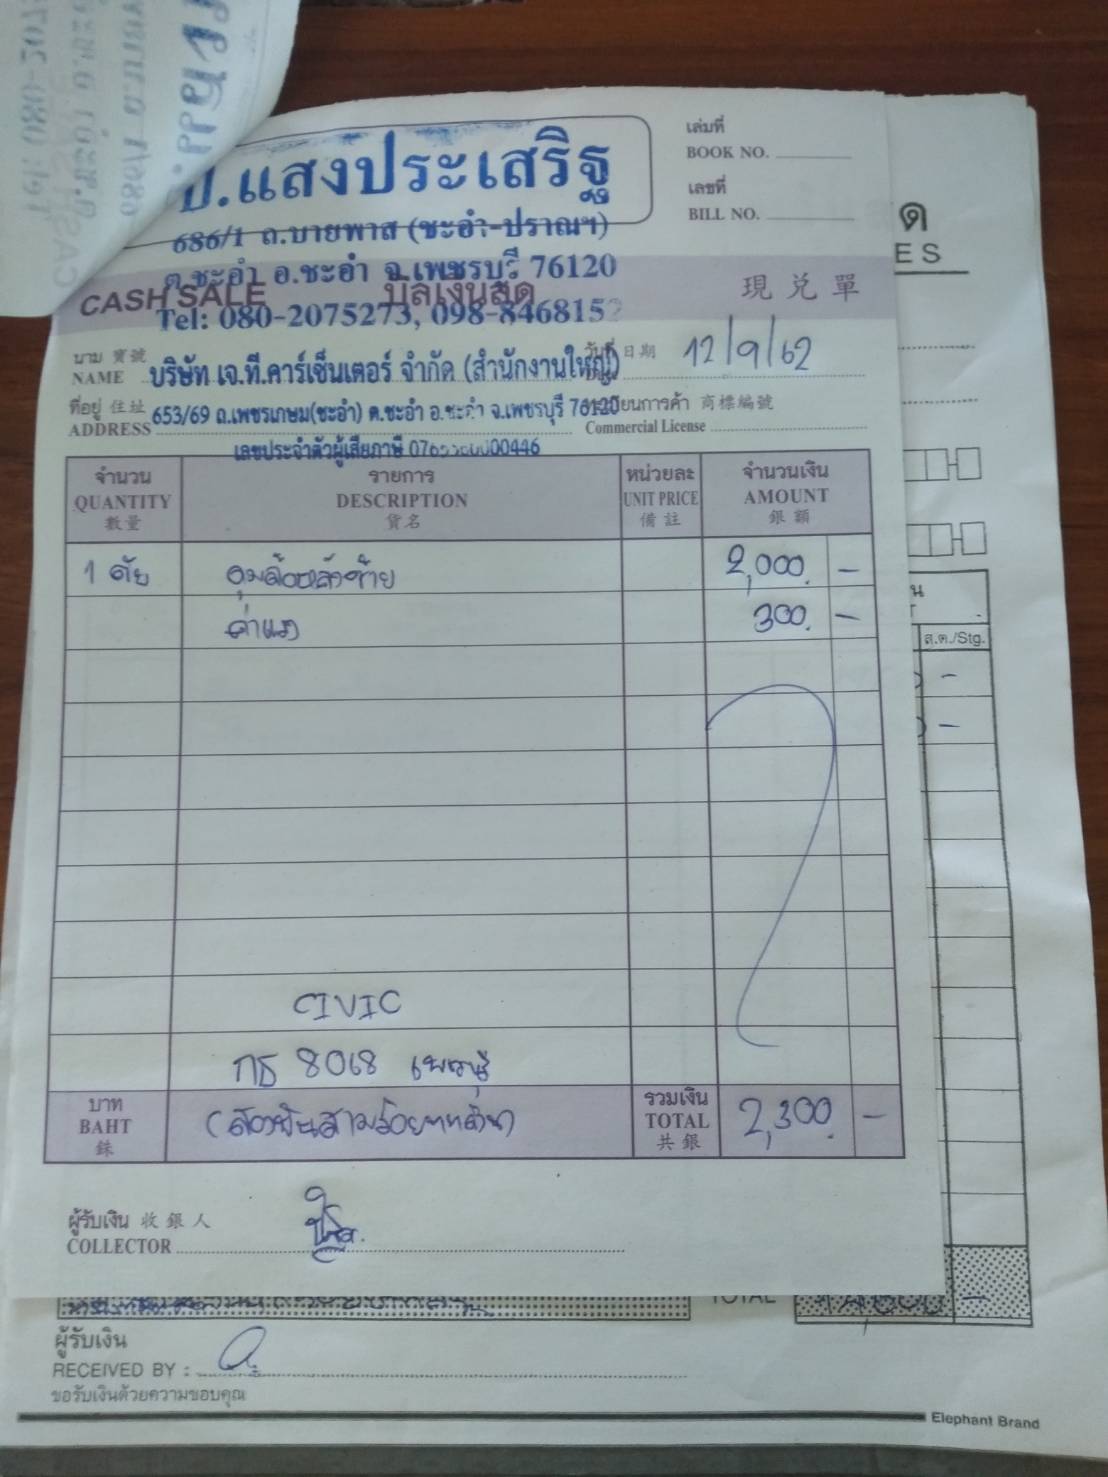 ป.แสงประเสริฐ
686/1 ถ.บายพาส (ชะอำ-ปราณฯ)
ต.ชะอำ อ.ชะอำ จ.เพชรบุรี 76120
Tel: 080-2075273, 098-8468152
เล่มที่
BOOK NO.
เลขที่
BILL NO.
CASH SALE บิลเงินสด 現兌單
นาม 寶號
NAME บริษัท เจ.ที.คาร์เซ็นเตอร์ จำกัด (สำนักงานใหญ่)
วันที่ 日期 12/9/62
ที่อยู่ 住址
ADDRESS 653/69 ถ.เพชรเกษม(ชะอำ) ต.ชะอำ อ.ชะอำ จ.เพชรบุรี 76120
ทะเบียนการค้า 商標編號
Commercial License
เลขประจำตัวผู้เสียภาษี
จำนวน รายการ หน่วยละ จำนวนเงิน
QUANTITY DESCRIPTION UNIT PRICE AMOUNT
數量 貨名 備註 銀額
1 ตัว ดุมล้อหลังซ้าย 2,000. -
ค่าแรง 300. -
CIVIC
กธ 8068 เพชรบุรี
บาท
BAHT (สองพันสามร้อยบาทถ้วน)
銖
รวมเงิน
TOTAL 2,300. -
共銀
ผู้รับเงิน 收銀人
COLLECTOR
ด
ES
ส.ต./Stg.
TOTAL
ผู้รับเงิน
RECEIVED BY :
ขอรับเงินด้วยความขอบคุณ
Elephant Brand